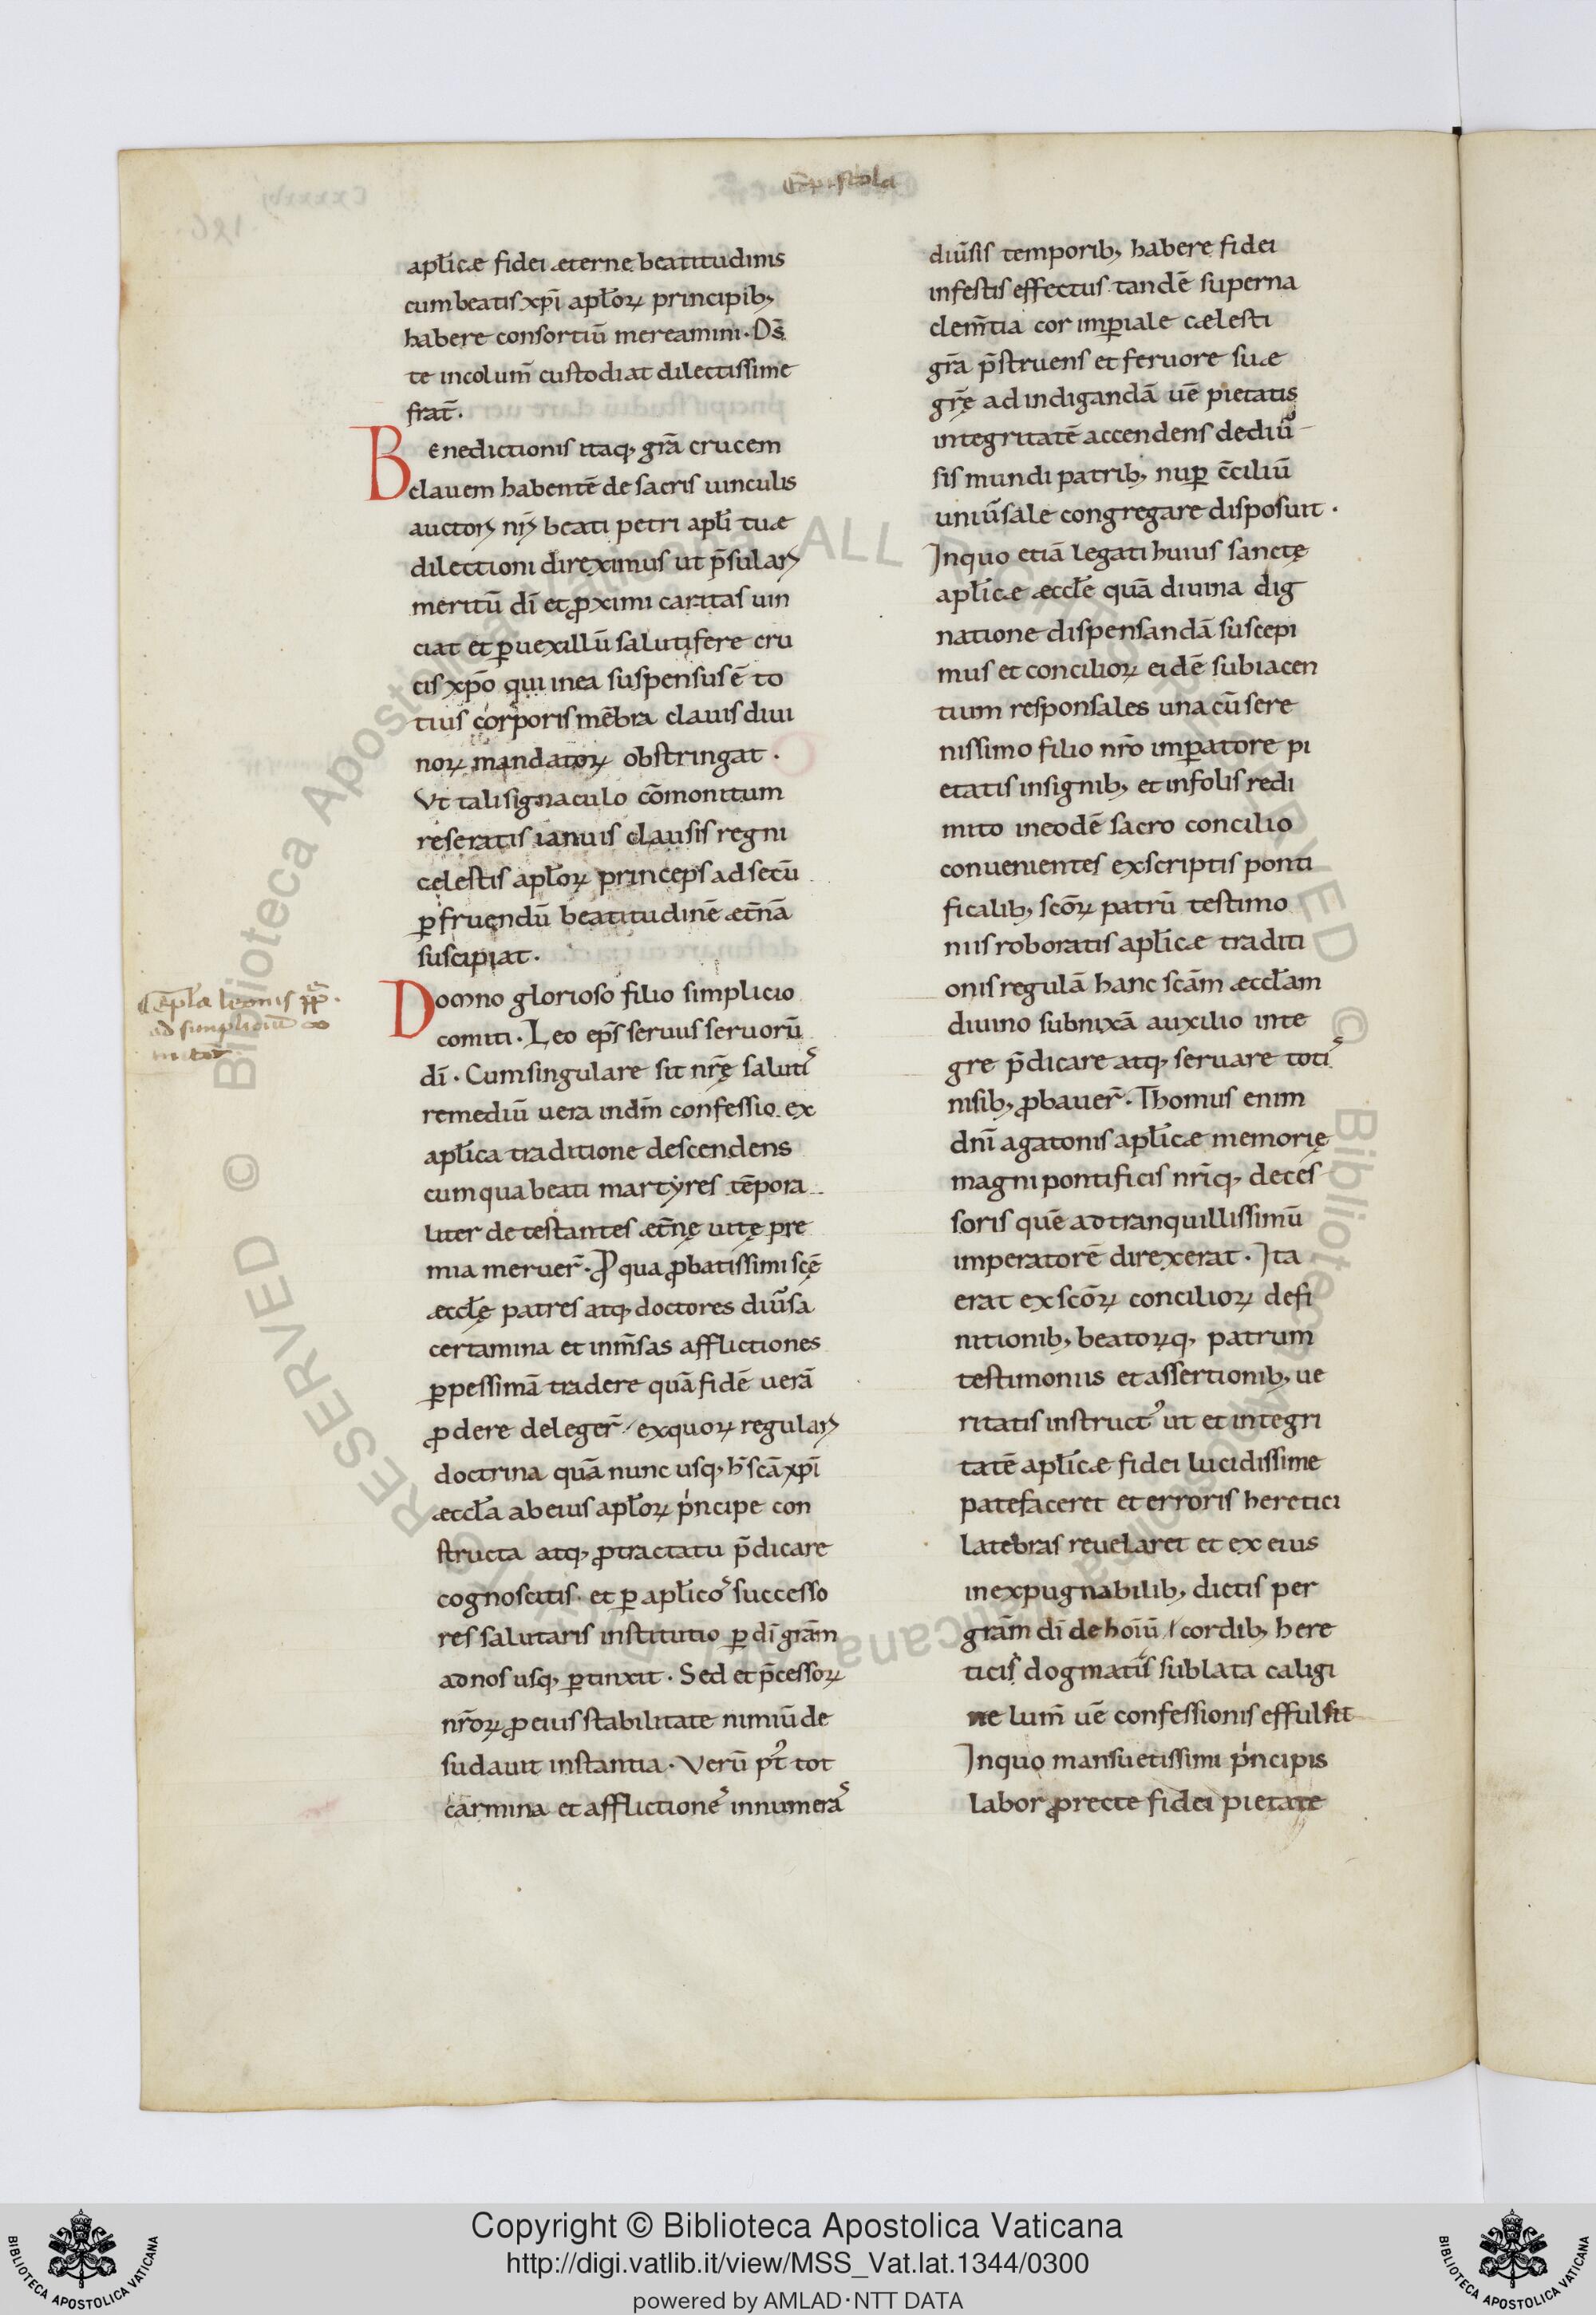 Epistola
apl̄icæ fidei æterne beatitudinis
cum beatis xp̄i apl̄oꝝ principib;
habere consortiū mereamini · Ds̄
te incolum̄ custodiat dilectissime
frat̄ ·
Benedictionis itaq; gr̄a crucem
clauem habentē de sacris uinculis
auctorꝭ nrꝭ beati petri apl̄i tuæ
dilectioni direximus ut p̄sularꝭ
meritū dī et ꝓximi caritas uin
ciat et ꝑ uexillū salutifere cru
cis xp̄o qui in ea suspensus ē to
tius corporis mēbra clauis diui
noꝝ mandatoꝝ obstringat ·
Vt tali signaculo cōmonitum
reseratis ianuis clausis regni
celestis apl̄oꝝ princeps ad secū
ꝑfruendū beatitudinē æt̄nā
suscipiat ·
Domno glorioso filio simplicio
comiti · Leo ep̄s seruus seruorū
dī · Cum singulare sit nr̄ę salutiˢ
remediū uera in dm̄ confessio ex
apl̄ica traditione descendens
cum qua beati martyres tēpora
liter detestantes æt̄nę uitę pre
mia meruer̄ · Ꝑ qua ꝓbatissimi scę̄
æccl̄ę patres atq; doctores diūsa
certamina et inm̄sas afflictiones
ꝑpessimā tradere quā fidē uerā
ꝓdere deleger̄ / ex quoꝝ regularꝭ
doctrina quā nunc usq; h̄ scā xp̄i
æccl̄a ab eius apl̄oꝝ pⁱncipe con
structa atq; ꝓtractatu p̄dicare
cognoscitis · et ꝑ apl̄icoˢ successo
res salutaris institutio ꝑ dī gr̄am
ad nos usq; ꝑtinxit · Sed et p̄cessoꝝ
nr̄oꝝ ꝓ eius stabilitate nimiū de
sudauit instantia · Verū pꝰt̄ tot
carmina et afflictioneˢ innumeraˢ
Ep̄l̄a leonis pp̄
ad simpliciū co
mitē
diūsis temporib; habere fidei
infestis effectus tandē superna
clem̄tia cor imꝑiale cælesti
gr̄a p̄struens et feruore suæ
gr̄ę ad indigandā uē pietatis
integritatē accendens dediū
sis mundi patrib; nuꝑ c̄ciliū
uniūsale congregare disposuit ·
In quo etiā legati huius sanctę
apl̄icæ æccl̄e quā diuina dig
natione dispensandā suscepi
mus et concilioꝝ eidē subiacen
tium responsales una cū sere
nissimo filio nr̄o imꝑatore pi
etatis insignib; et infolis redi
mito in eodē sacro concilio
conuenientes ex scriptis ponti
ficalib; scōꝝ patrū testimo
niis roboratis apl̄icæ traditi
onis regulā hanc scām æccl̄am
diuino subnixā auxilio inte
gre p̄dicare atq; seruare totiˢ
nisib; ꝓbauer̄ · Thomus enim
dnī agatonis apl̄icæ memorię
magni pontificis nr̄iq; deces
soris quē ad tranquillissimū
imperatorē direxerat · Ita
erat ex scōꝝ concilioꝝ defi
nitionib; beatoꝝq; patrum
testimoniis et assertionib; ue
ritatis instructꝰ ut et integri
tatē apl̄icæ fidei lucidissime
patefaceret et erroris heretici
latebras reuelaret et ex eius
inexpugnabilib; dictis per
gr̄am dī de hoīū cordib; here
ticis dogmatis sublata caligi
ne lum̄ uē confessionis effulsit
In quo mansuetissimi pⁱncipis
labor ꝓ recte fidei pietate
Copyright © Biblioteca Apostolica Vaticana
http://digi.vatlib.it/view/MSS_Vat.lat.1344/0300
powered by AMLAD·NTT DATA
BIBLIOTECA APOSTOLICA VATICANA
BIBLIOTECA APOSTOLICA VATICANA